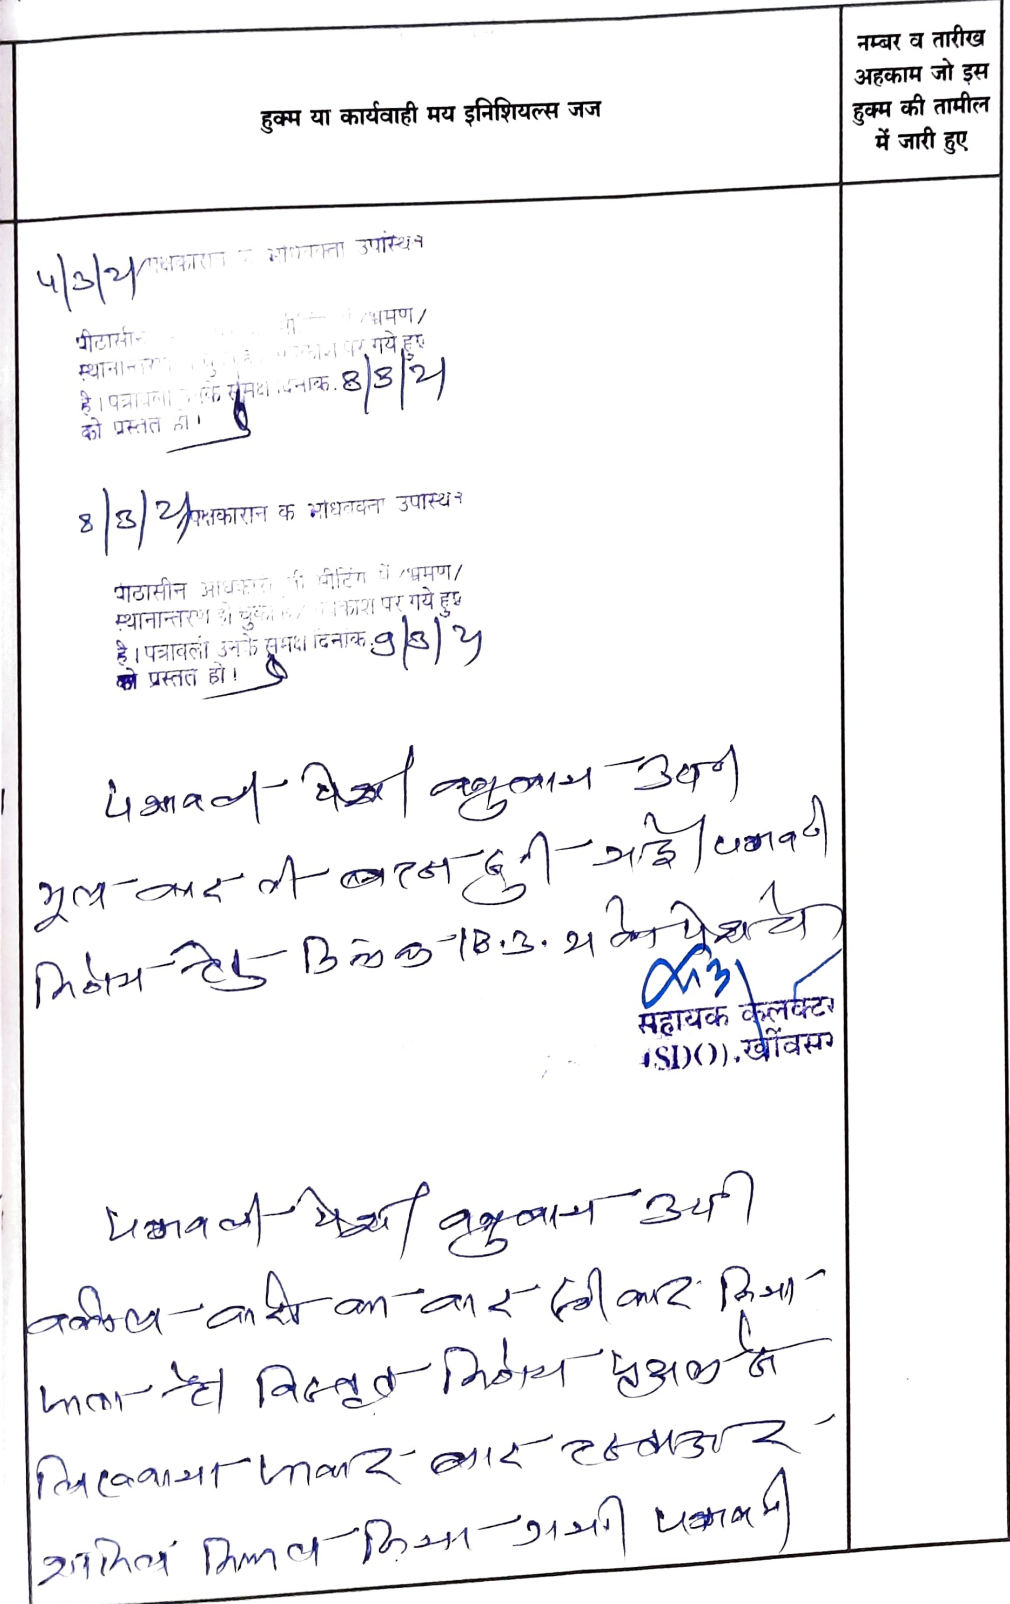 हुक्म या कार्यवाही मय इनिशियल्स जज
नम्बर व तारीख
अहकाम जो इस
हुक्म की तामील
में जारी हुए
4/3/21 पक्षकारान उपस्थित
पीठासीन भ्रमण/
स्थानान्तरण पर गये हुए
है। पत्रावली उनके समक्ष दिनांक 8/3/21
को प्रस्तुत हो।
8/3/21 पक्षकारान के अधिवक्ता उपास्थित
पीठासीन अधिकारी मीटिंग में /भ्रमण/
स्थानान्तरण हो चुका अवकाश पर गये हुए
है। पत्रावली उनके समक्ष दिनांक 9/3/21
को प्रस्तत हो।
पत्रावली पेश। वकुलाय उप०
मूल वाद की बहस सुनी गई। पत्रावली
निर्णय हेतु दिनांक 18.3.21 को पेश हो
सहायक कलक्टर
(SDO), खींवसर
पत्रावली पेश। वकुलाय उप०
वकील वादी का वाद स्वीकार किया
जाता है। विस्तृत निर्णय पृथक से
लिखवाया जाकर बाद हस्ताक्षर
शामिल मिसल किया गया। पत्रावली